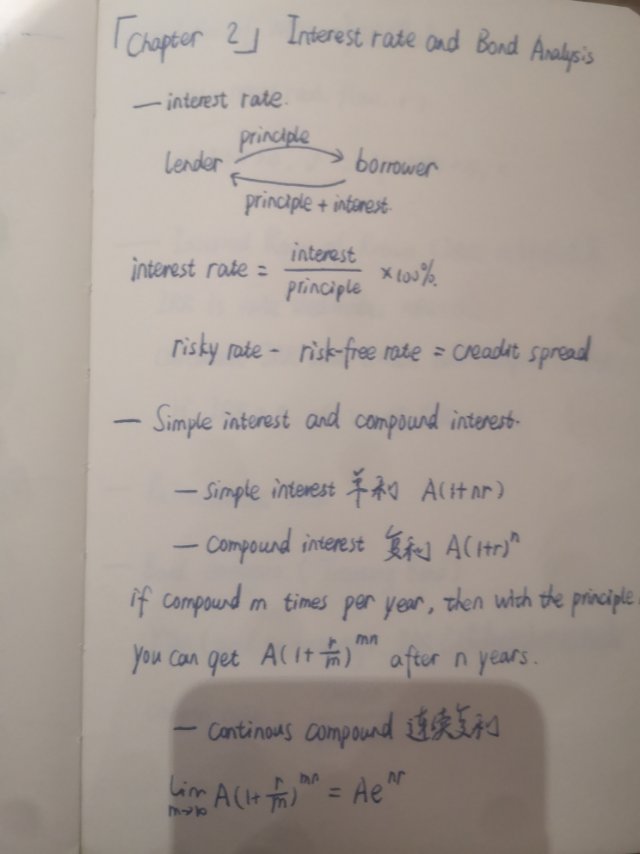 「Chapter 2」 Interest rate and Bond Analysis
— interest rate.
principle
lender borrower
principle + interest
interest rate = interest / principle ×100%
risky rate - risk-free rate = creadit spread
— Simple interest and compound interest.
— simple interest 单利 A(1+nr)
— compound interest 复利 A(1+r)^n
if compound m times per year, then with the principle
you can get A(1+r/m)^mn after n years.
— continous compound 连续复利
lim m→∞ A(1+r/m)^mn = Ae^nr